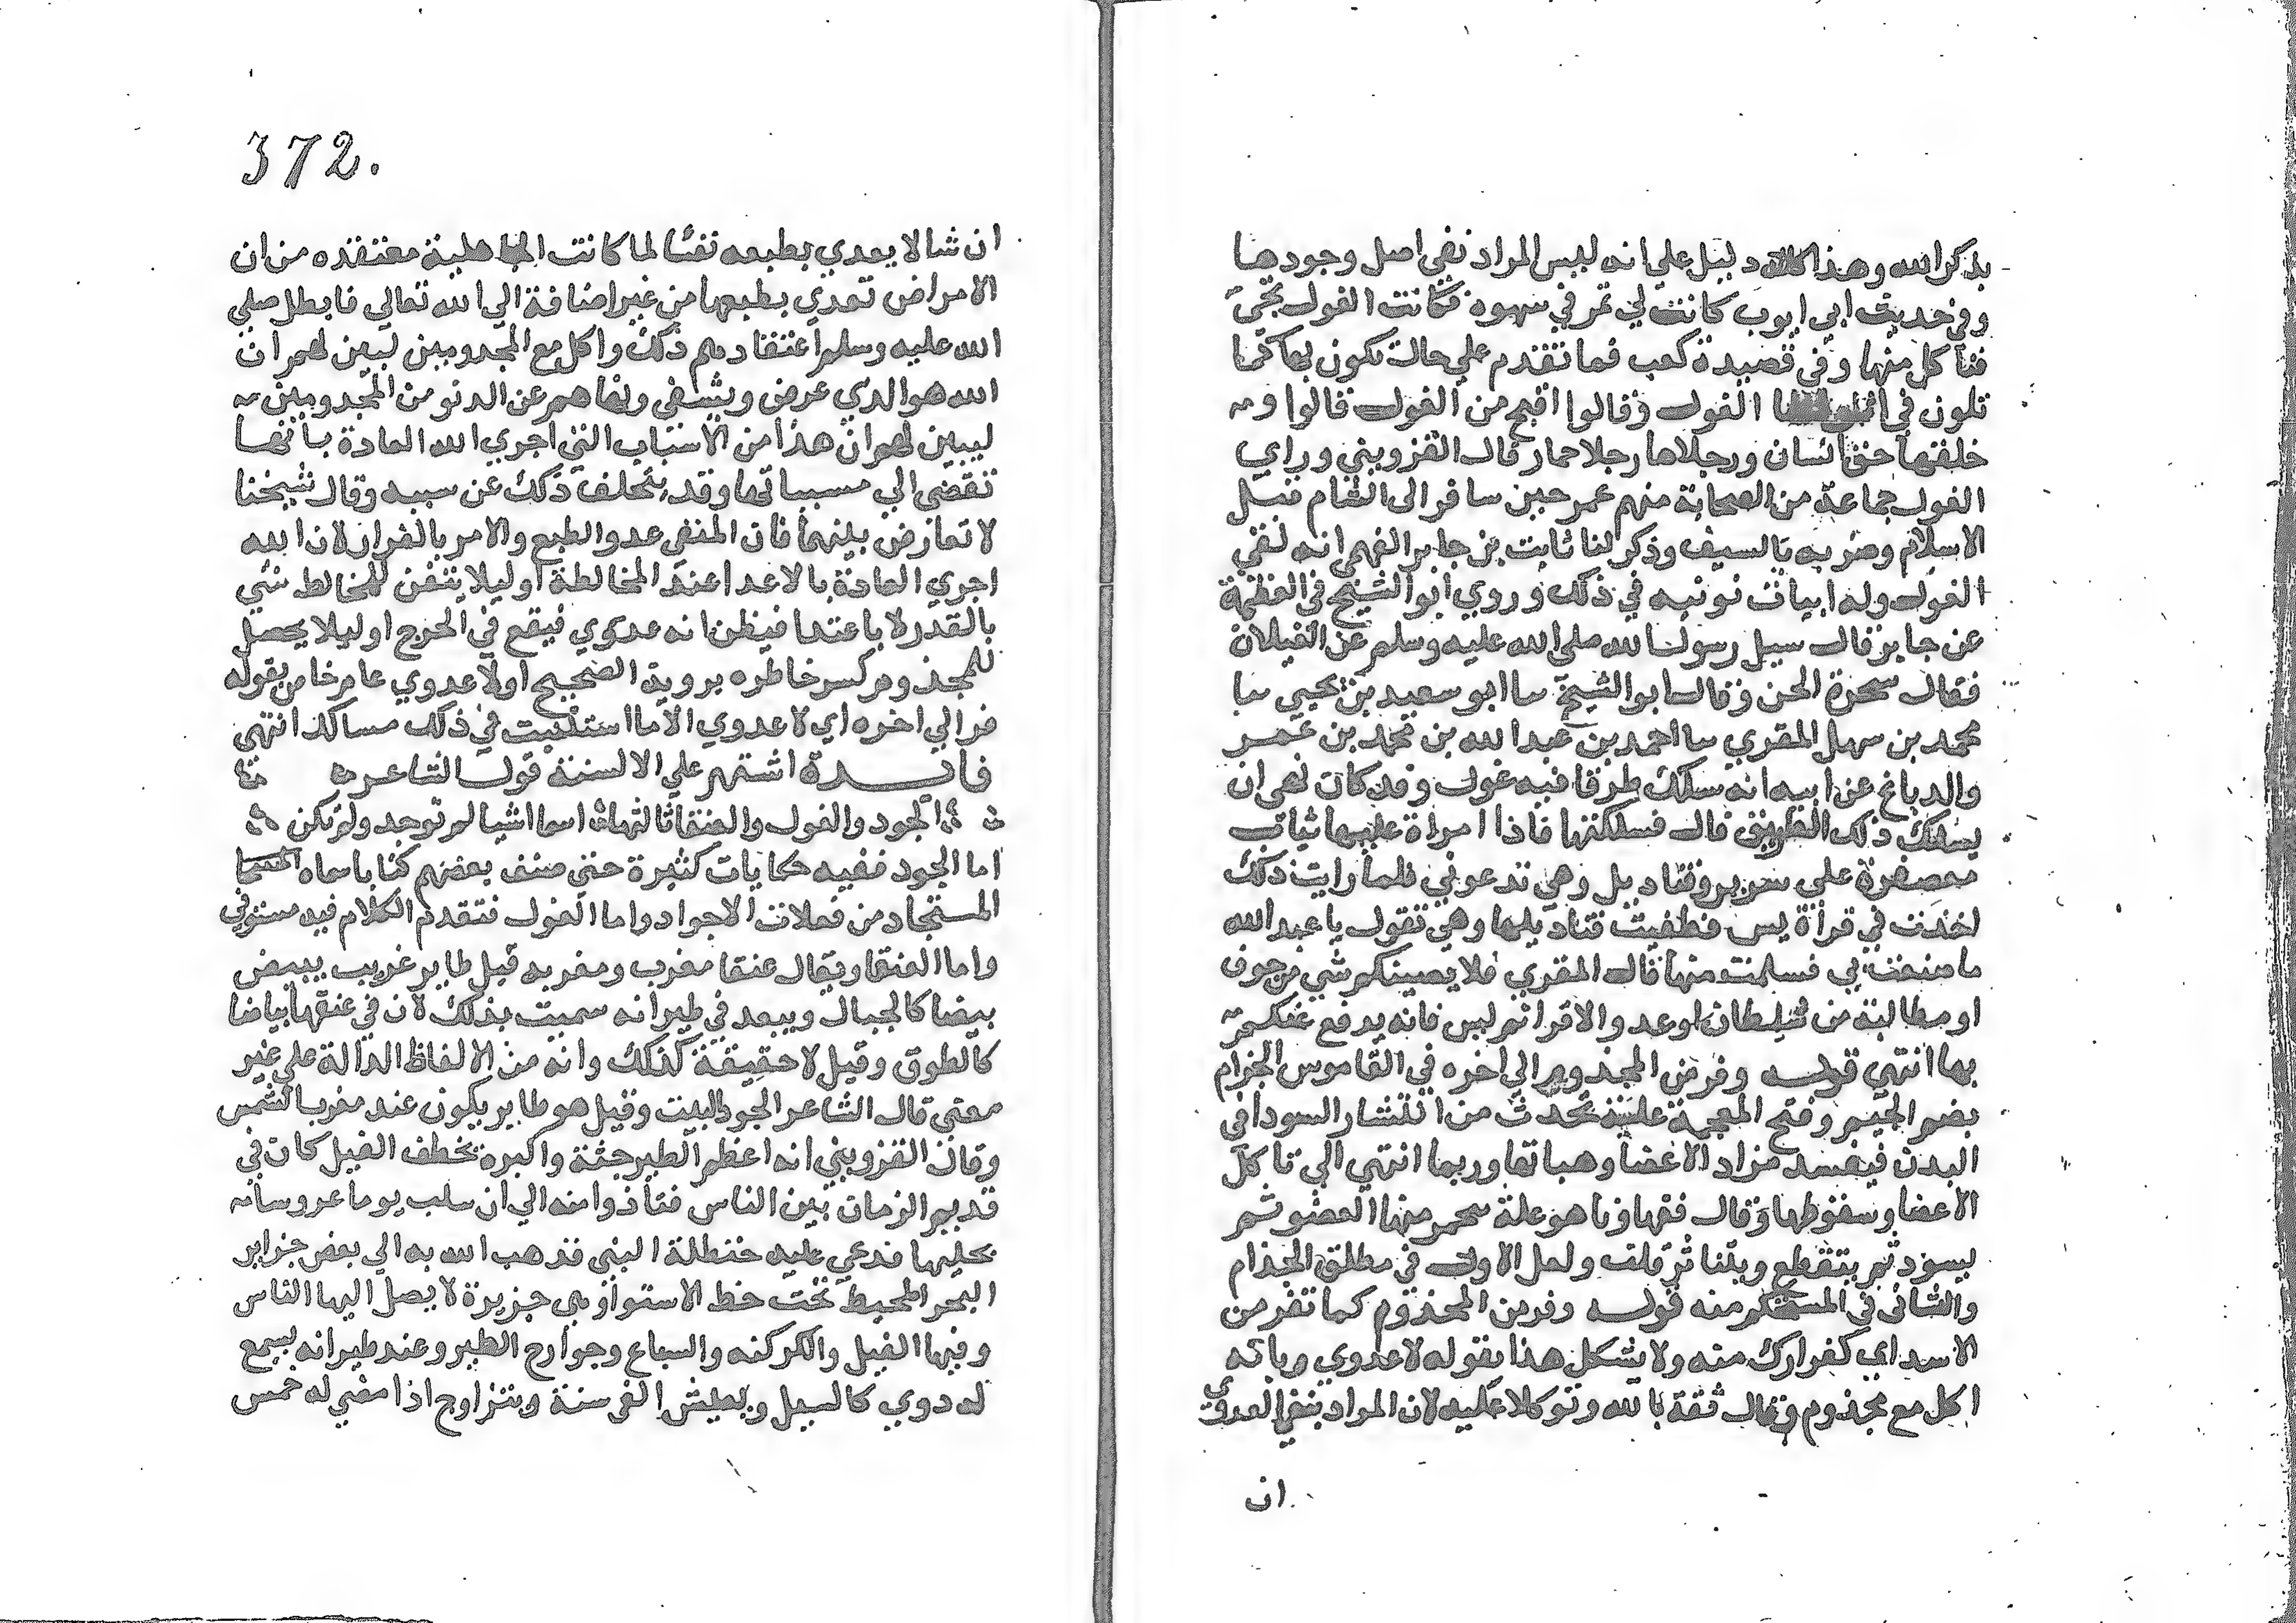 بذكر الله وهذا كله دليل علي انه ليس المراد نفي اصل وجودها
وفي حديث ابي ايوب كانت لي تمر في سهوه فكانت الغول تجئ
فتأكل منها وفي قصيدة كعب فما تقدم علي حالة تكون بها كما
تلون في اثوابها الغول وقالوا اقبح من الغول قالوا و
خلقتها خلق انسان ورجلاها رجلا حمار قال القزويني وراي
الغول جماعة من الصحابة منهم عمر حين سافر الى الشام قبل
الاسلام وضربه بالسيف وذكر لنا ثابت بن جابر الفهمي انه لقي
الغول وله ابيات نونيه في ذلك وروي ابو الشيخ في العظمة
عن جابر قال سيل رسول الله صلى الله عليه وسلم عن الغيلان
فقال سحرة الجن وقال ابو الشيخ سا ابو سعيد بن يحيي سا
محمد بن سهل المقري سا احمد بن عبد الله بن محمد بن عمر
والدباغ عن ابيه انه سلك طرقا فيه غول وقد كان نهي ان
يسلك ذلك الطريق قال فسلكتها فاذا امراة عليها ثياب
معصفرة علي سرير وقناديل وهي تدعوني فلما رايت ذلك
اخذت في قرأة يس فطفيت قناديلها وهي تقول يا عبد الله
ما صنعت بي فسلمت منها قال المقري فلا يصيبكم شي من خوف
او مطالبة من سلطان او عدو الا قراتم يس فانه يدفع عنكم
بها انتهي قوله وفر من المجذوم الي اخره في القاموس الجزام
بضم الجيم وفتح المعجمة علة تحدث من انتشار السودا في
البدن فيفسد مزاد الاعضا وهياتها وربما انتهي الي تاكل
الاعضا وسقوطها وقال فقهاونا هو علة يحمر منها العضو ثم
يسود ثم يتقطع ويتناثر قلت ولعل الاول في مطلق الجذام
والثاني في المستحكم منه قوله وفر من المجذوم كما تفر من
الاسد اي كفرارك منه ولا يشكل هذا بقوله لا عدوي وبانه
اكل مع مجذوم وقال ثقة بالله وتوكلا عليه لان المراد بنفي العدوي
ان
372.
ان شيا لا يعدي بطبعه نفيا لما كانت الجاهلية معتقده من ان
الامراض تعدي بطبعها من غير اضافة الي الله تعالي فابطل صلي
الله عليه وسلم اعتقادهم ذلك واكل مع المجدومين ليبين لهم ان
الله هو الدي عرض ويشفي ونهاهم عن الدنو من المجدومين
ليبين لهم ان هذا من الاسباب التي اجري الله العادة بانها
تقضي الي مسبباتها وقد يتخلف ذلك عن سببه وقال شيخنا
لا تعارض بينهما فان المنفي عدو الطبع والامر بالفرار لان الله
اجري العادة بالاعدا عند المخالطة او ليلا يتفق للمخالط شي
بالقدر لا باعتدا فيظن انه عدوي فيقع في الحرج او ليلا يحصل
للمجذوم كسر خاطره بروية الصحيح او لا عدوي عام خا من بقوله
فر الي اخره اي لا عدوي الا ما استثنيت في ذلك مسالك انتهي
فايدة اشتهر علي الالسنة قول الشاعر
الجود والغول والعنقا ثالثهما اسما اشيا لم توجد ولم تكن
اما الجود ففيه حكايات كثيرة حتي صنف بعضهم كتابا سماه
المستجاد من فعلات الاجواد واما الغول فتقدم الكلام فيه مستوفي
واما العنقا ويقال عنقا مغرب ومغربه قيل طاير غريب يبيض
بيضا كالجبال ويبعد في طيرانه سميت بذلك لان في عنقها بياضا
كالطوق وقيل لا حقيقة لذلك وانه من الالفاظ الدالة علي غير
معني قال الشاعر الجود البيت وقيل هو طاير يكون عند مغرب الشمس
وقال القزويني انه اعظم الطير جثة واكبره يخطف الفيل كان في
قديم الزمان بين الناس فتأذوا منه الي ان سلب يوما عروسا
بحليها فدعي عليه حنظلة النبي فذهب الله به الي بعض جزاير
البحر المحيط تحت خط الاستوا وهي جزيرة لا يصل اليها الناس
وفيها الفيل والكركند والسباع وجوارح الطير وعند طيرانه يسمع
له دوي كالسيل ويعيش الفي سنة ويتزاوج اذا مضي له خمس